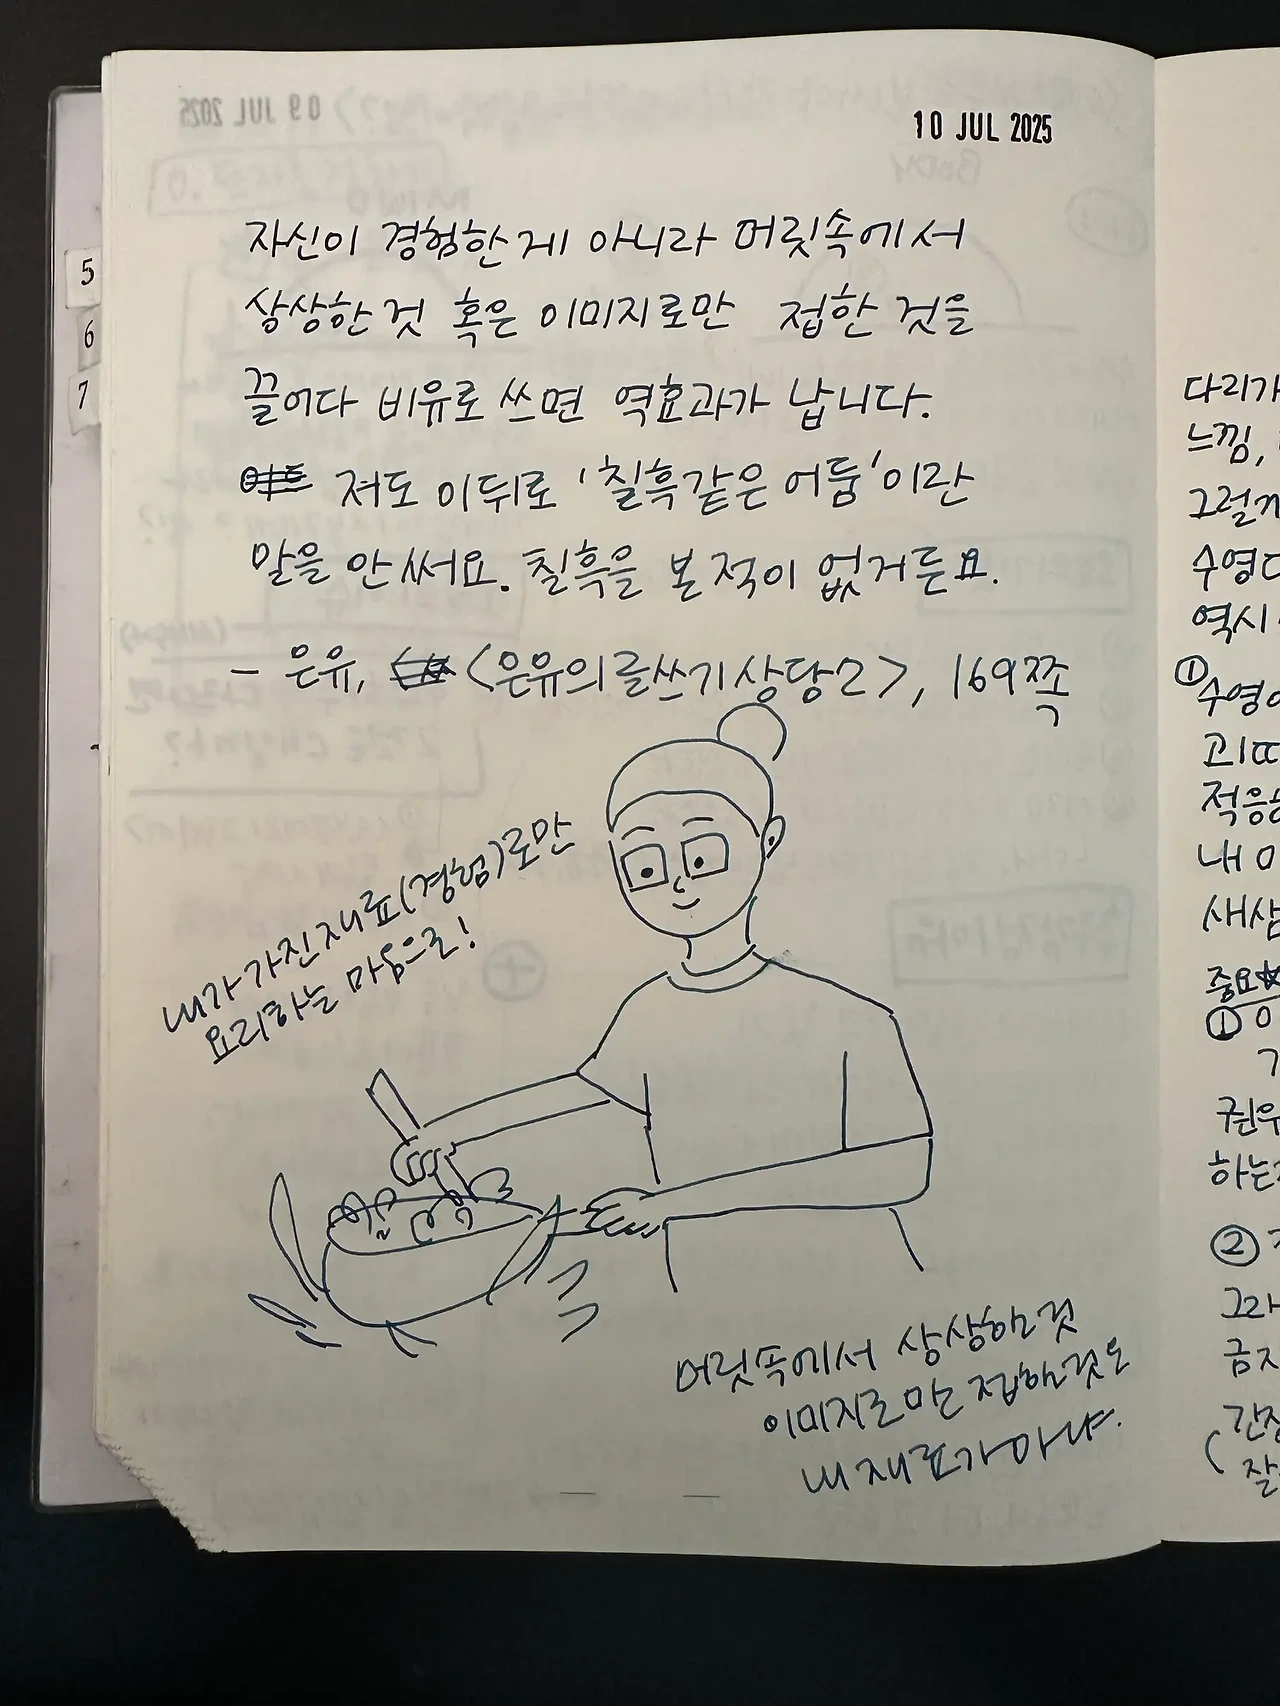 10 JUL 2025
자신이 경험한 게 아니라 머릿속에서
상상한 것 혹은 이미지로만 접한 것을
끌어다 비유로 쓰면 역효과가 납니다.
저도 이 뒤로 '칠흑같은 어둠'이란
말을 안 써요. 칠흑을 본 적이 없거든요.
- 은유, <은유의 글쓰기 상담소>, 169쪽
내가 가진 재료(경험)로만
요리하는 마음으로!
머릿속에서 상상한 것
이미지로만 접한 것은
내 재료가 아냐.
5
6
7
다리가
느낌,
그럴
수영
역시
①
수영
고
적응
내
새삼
중요
①
권우
하는
②
그
금지
긴장
잘